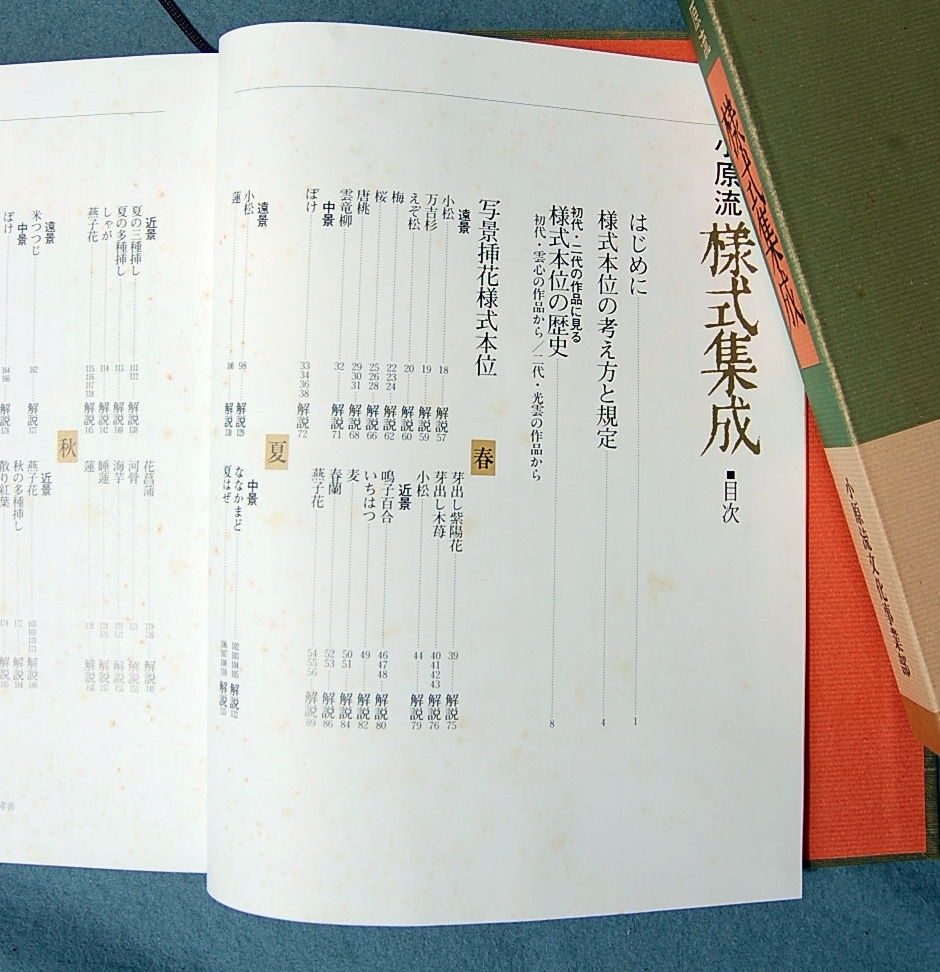 小原流 様式集成 ■目次
はじめに 1
様式本位の考え方と規定 4
初代・二代の作品に見る
様式本位の歴史 8
初代・雲心の作品から／二代・光雲の作品から
写景挿花様式本位
春
遠景
小松 18 解説57
万吉杉 19 解説59
えぞ松 20 解説60
梅 22 23 24 解説62
桜 25 26 28 解説66
唐桃 29 30 31 解説68
雲竜柳 32 解説71
中景
ぼけ 33 34 36 38 解説72
芽出し紫陽花 39 解説75
芽出し木苺 40 41 42 43 解説76
小松 44 解説79
近景
鳴子百合 46 47 48 解説80
いちはつ 49 解説82
麦 50 51 解説84
春蘭 52 53 解説86
燕子花 54 55 56 解説89
夏
遠景
小松 98 解説129
蓮 100 解説130
中景
ななかまど 102 103 104 105 解説132
夏はぜ 解説
近景
夏の三種挿し 111 112 解説138
夏の多種挿し 113 解説140
しゃが 114 解説142
燕子花 115 116 117 118 解説145
花菖蒲 解説
河骨 解説
海芋 解説
睡蓮 解説
蓮 解説
秋
遠景
米つつじ 162 解説177
中景
ぼけ 164 166 解説178
近景
燕子花 解説
秋の多種挿し 解説
散り紅葉 解説
様式集成
小原流文化事業部